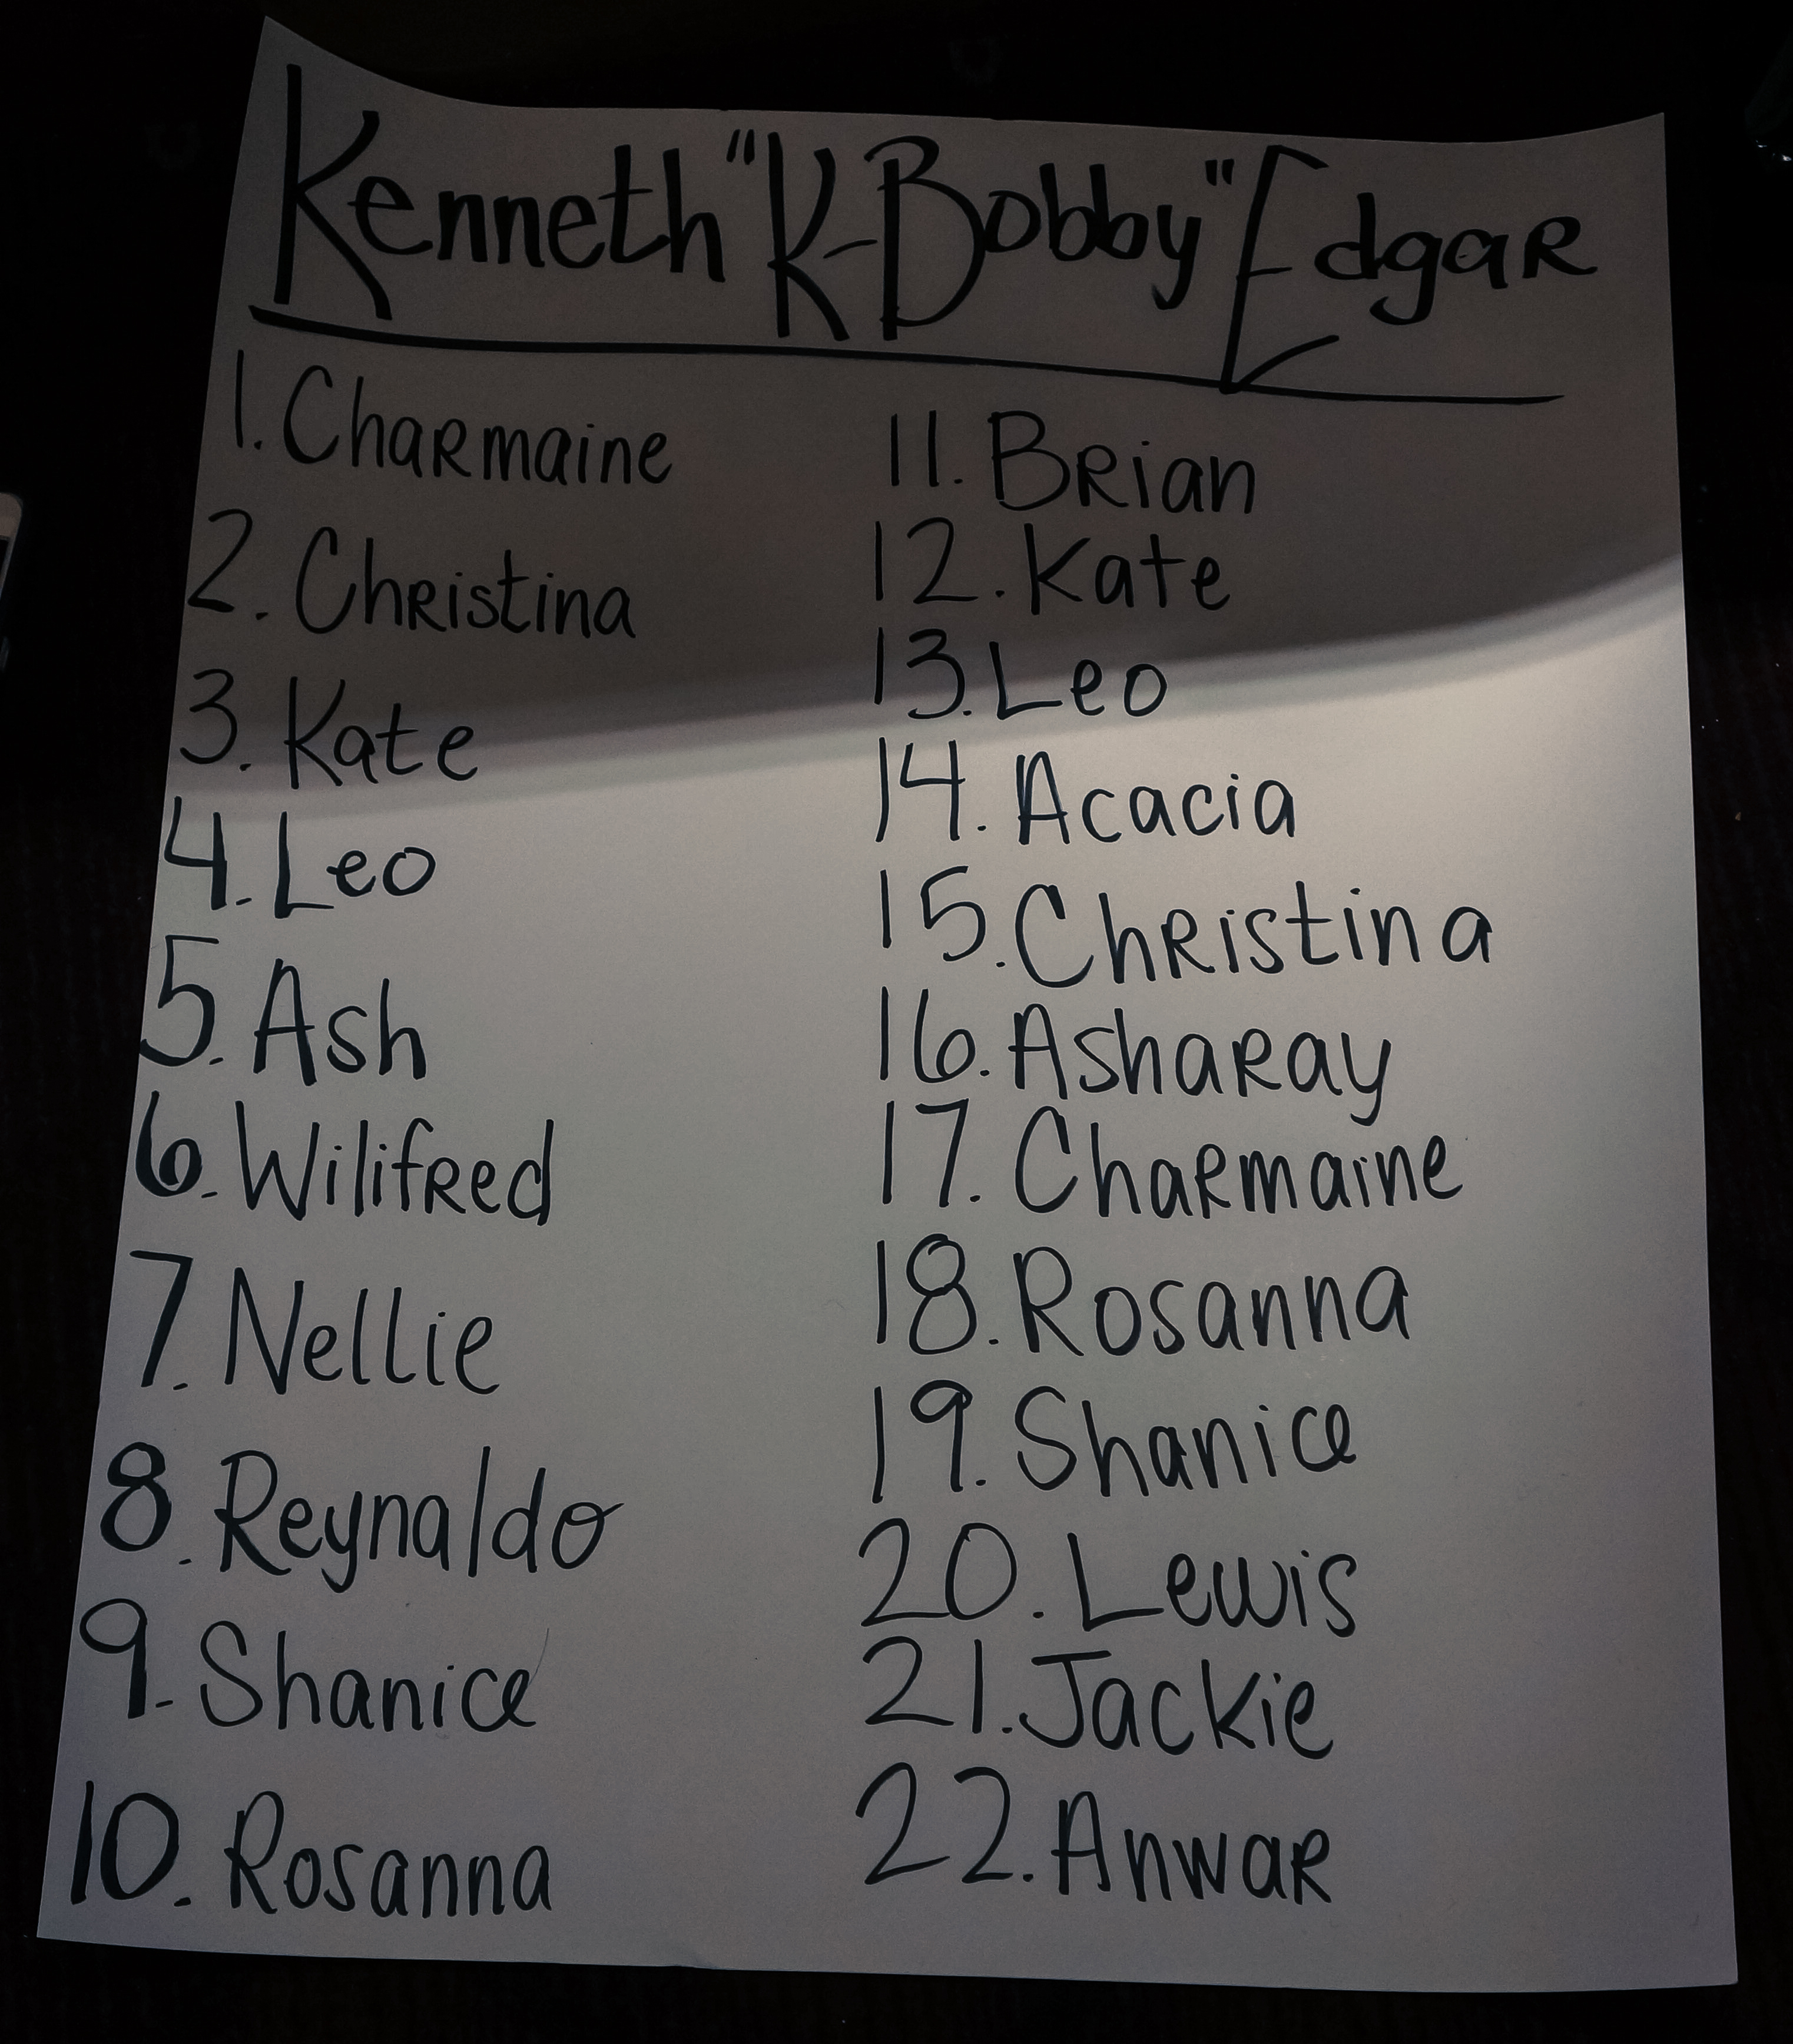 Kenneth "K-Bobby" Edgar
1. Charmaine
2. Christina
3. Kate
4. Leo
5. Ash
6. Wilifred
7. Nellie
8. Reynaldo
9. Shanice
10. Rosanna
11. Brian
12. Kate
13. Leo
14. Acacia
15. Christina
16. Asharay
17. Charmaine
18. Rosanna
19. Shanice
20. Lewis
21. Jackie
22. Anwar